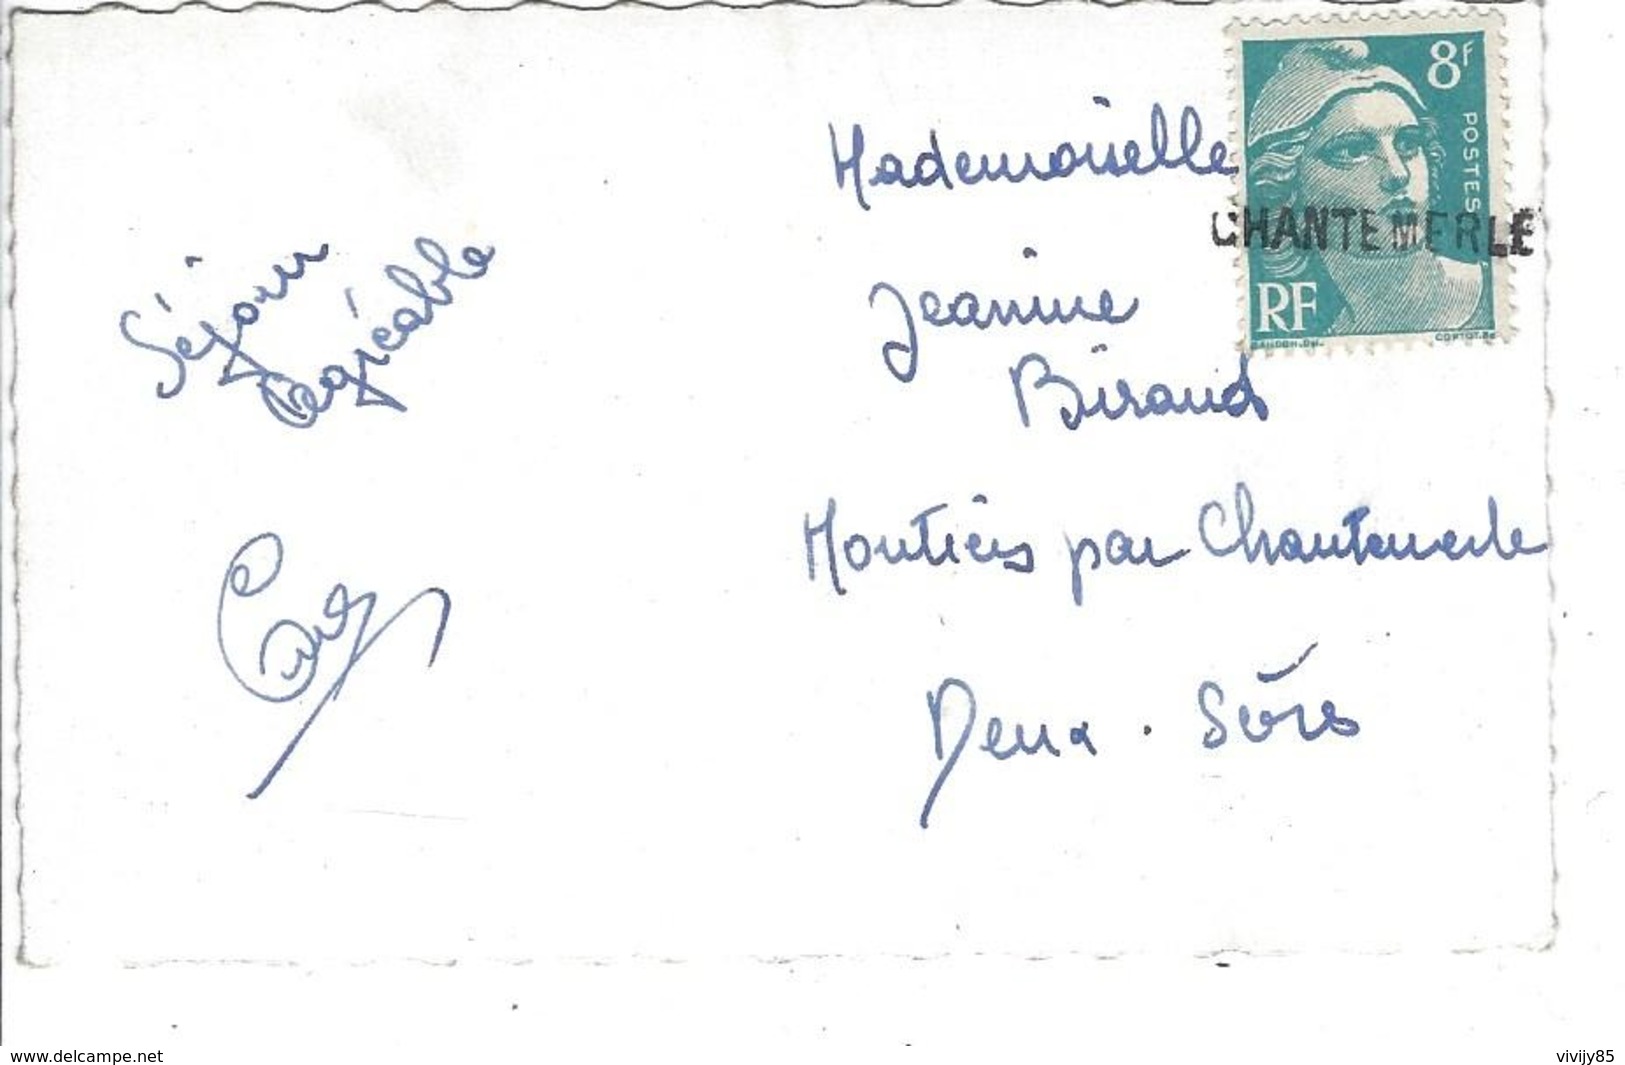 Séjour
agréable
Mademoiselle
Jeanine
Biraud
Moutiers par Chantemerle
Deux-Sèvres
8F
POSTES
CHANTEMERLE
RF
GANDON.DEL.
CORTOT.SC
www.delcampe.net
vivijy85